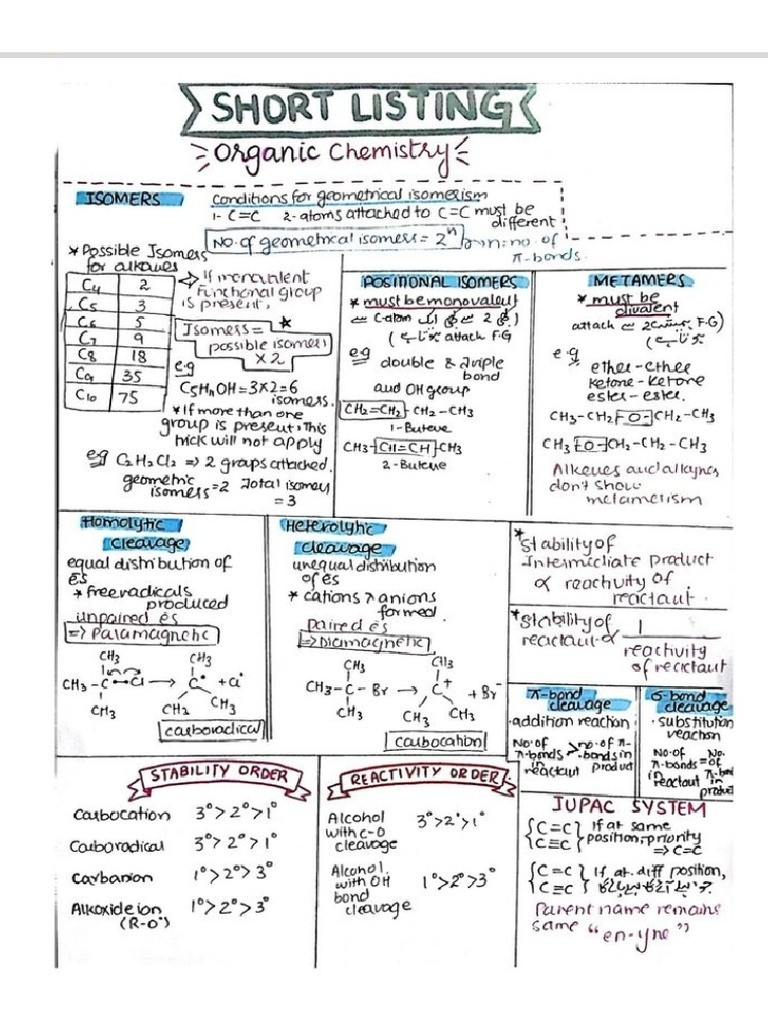 SHORT LISTING
Organic Chemistry
ISOMERS
Conditions for geometrical isomerism
1- C=C 2- atoms attached to C=C must be
different
No. of geometrical isomers = 2ⁿ n: no. of
π-bonds.
* Possible Isomers
for alkanes
C4 2
C5 3
C6 5
C7 9
C8 18
C9 35
C10 75
If monovalent
Functional group
is present,
Isomers =
possible isomers
×2
e.g
C5H11OH = 3×2 = 6
isomers.
* If more than one
group is present, this
trick will not apply
eg C2H2Cl2 => 2 groups attached.
geometric
isomers = 2 Total isomers
= 3
POSITIONAL ISOMERS
* must be monovalent
C-atom
attach F.G)
eg double & triple
bond
and OH group
CH2=CH2-CH2-CH3
1-Butene
CH3-CH=CH-CH3
2-Butene
METAMERS
* must be
divalent
attach 2C F.G)
e.g
ether-ether
ketone-ketone
ester-ester.
CH3-CH2-O-CH2-CH3
CH3-O-CH2-CH2-CH3
Alkenes and alkynes
don't show
metamerism
Homolytic
cleavage
equal distribution of
ēs
* free radicals
produced
unpaired ēs
=> Paramagnetic
CH3
CH3-C-Cl → C• + Cl•
CH3
CH3
CH2 CH3
carboradical
Heterolytic
cleavage
unequal distribution
of ēs
* cations & anions
formed
paired ēs
=> Diamagnetic
CH3
CH3-C-Br → C+ + Br-
CH3
CH3
CH3 CH3
carbocation
* stability of
Intermediate product
∝ reactivity of
reactant.
* stability of
reactant ∝ 1
reactivity
of reactant
π-bond
cleavage
. addition reaction
No. of
π-bonds > no. of π-
bonds in
in reactant product
σ-bond
cleavage
. substitution
reaction
No. of No.
π-bonds = of
in π-bond
reactant in
product
STABILITY ORDER
Carbocation 3° > 2° > 1°
Carboradical 3° > 2° > 1°
Carbanion 1° > 2° > 3°
Alkoxide ion 1° > 2° > 3°
(R-O⁻)
REACTIVITY ORDER
Alcohol
with C-O 3° > 2° > 1°
cleavage
Alcohol
with OH 1° > 2° > 3°
bond
cleavage
IUPAC SYSTEM
{C=C} If at same
{C≡C} position, priority
=> C=C
{C=C} If at diff position,
{C≡C}
Parent name remains
same "en-yne"